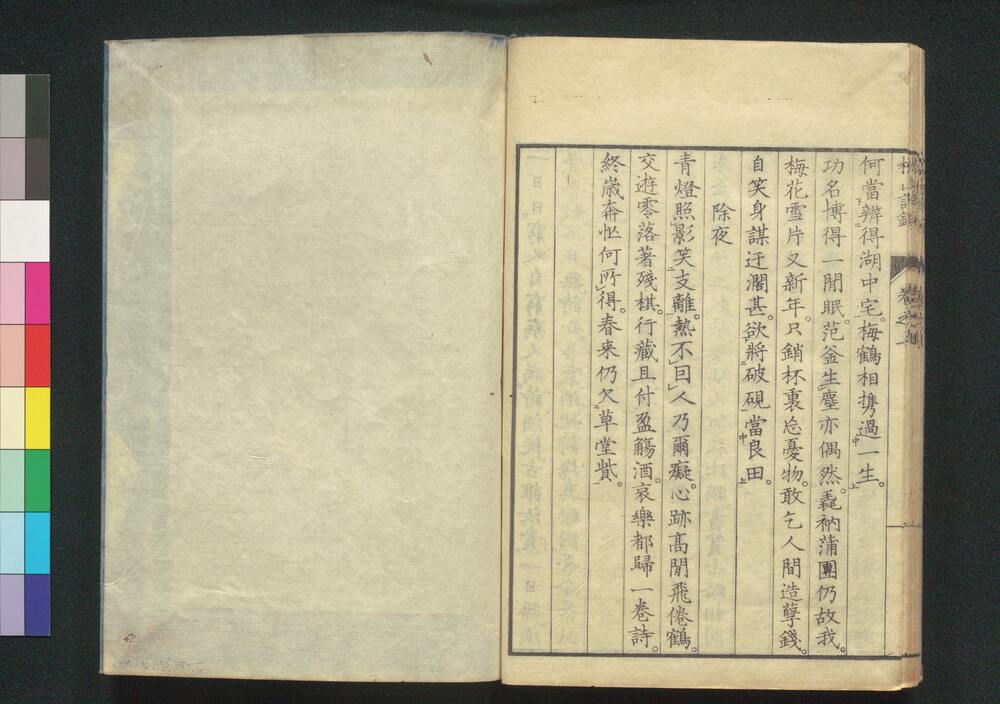 何當辨得湖中宅。梅鶴相携過一生。
功名博得一閒眠。范釜生塵亦偶然。毳衲蒲團仍故我。
梅花雪片又新年。只銷杯裏忘憂物。敢乞人間造孽錢。
自笑身謀迂濶甚。欲將破硯當良田。
除夜
青燈照影笑支離。熱不因人乃爾癡。心跡高閒飛倦鶴。
交遊零落著殘棋。行藏且付盈觴酒。哀樂都歸一巻詩。
終歳奔忙何所得。春来仍欠草堂貲。